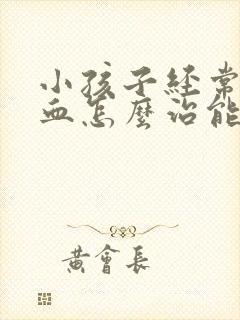 小孩子經常
血怎麼治能
黃會長